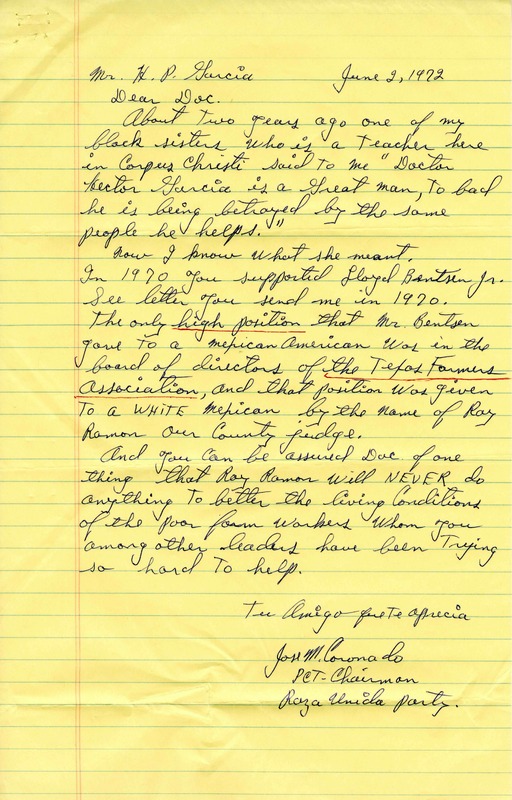 Mr. H. P. Garcia June 2, 1972
Dear Doc.
About Two years ago one of my
black sisters who is a Teacher here
in Corpus Christi said To me "Doctor
Hector Garcia is a Great man, To bad
he is being betrayed by the same
people he helps."
Now I know what she meant.
In 1970 you supported Lloyd Bentsen Jr.
See letter you send me in 1970.
The only high position that Mr. Bentsen
gave To a mexican American was in the
board of directors of the Texas Farmers
Association, and that position was given
To a WHITE mexican by the name of Ray
Ramon our County judge.
And you can be assured Doc of one
thing that Ray Ramon will NEVER do
anything To better the living conditions
of the poor farm workers whom you
among other leaders have been Trying
so hard To help.
Tu Amigo que te aprecia
Jose M. Coronado
PCT-Chairman
Raza Unida Party.